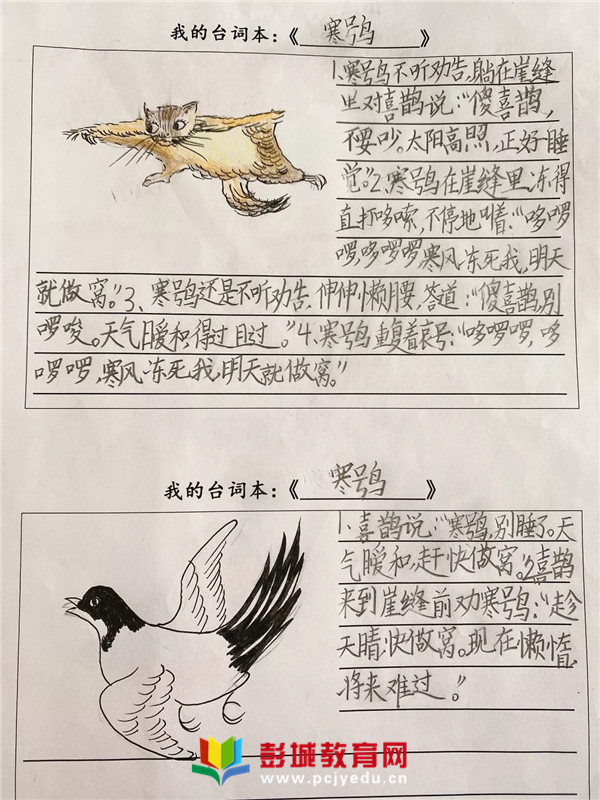 我的台词本：《寒号鸟》
1、寒号鸟不听劝告，躺在崖缝
里对喜鹊说：“傻喜鹊，
不要吵。太阳高照，正好睡
觉。”2、寒号鸟在崖缝里冻得
直打哆嗦，不停地叫着：“哆啰
啰，哆啰啰，寒风冻死我，明天
就做窝。”3、寒号鸟还是不听劝告，伸伸懒腰，答道：“傻喜鹊，别
啰唆。天气暖和，得过且过。”4、寒号鸟重复着哀号：“哆啰啰，哆
啰啰，寒风冻死我，明天就做窝。”
我的台词本：《寒号鸟》
1、喜鹊说：“寒号鸟，别睡了。天
气暖和，赶快做窝。”2、喜鹊
来到崖缝前劝寒号鸟：“趁
天晴，快做窝。现在懒惰，
将来难过。”
彭城教育网
www.pcjyedu.cn